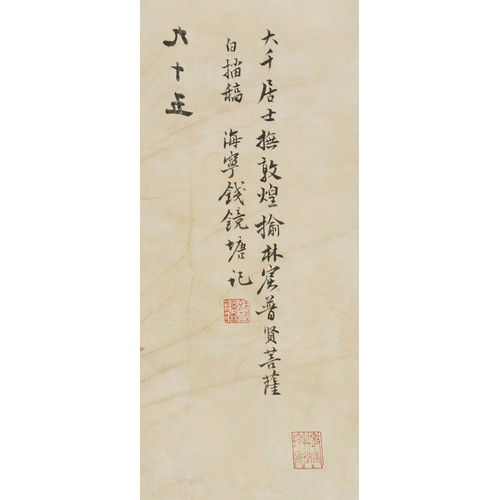 大千居士撫敦煌榆林窟普賢菩薩
白描稿 海寧錢鏡塘記
九十五